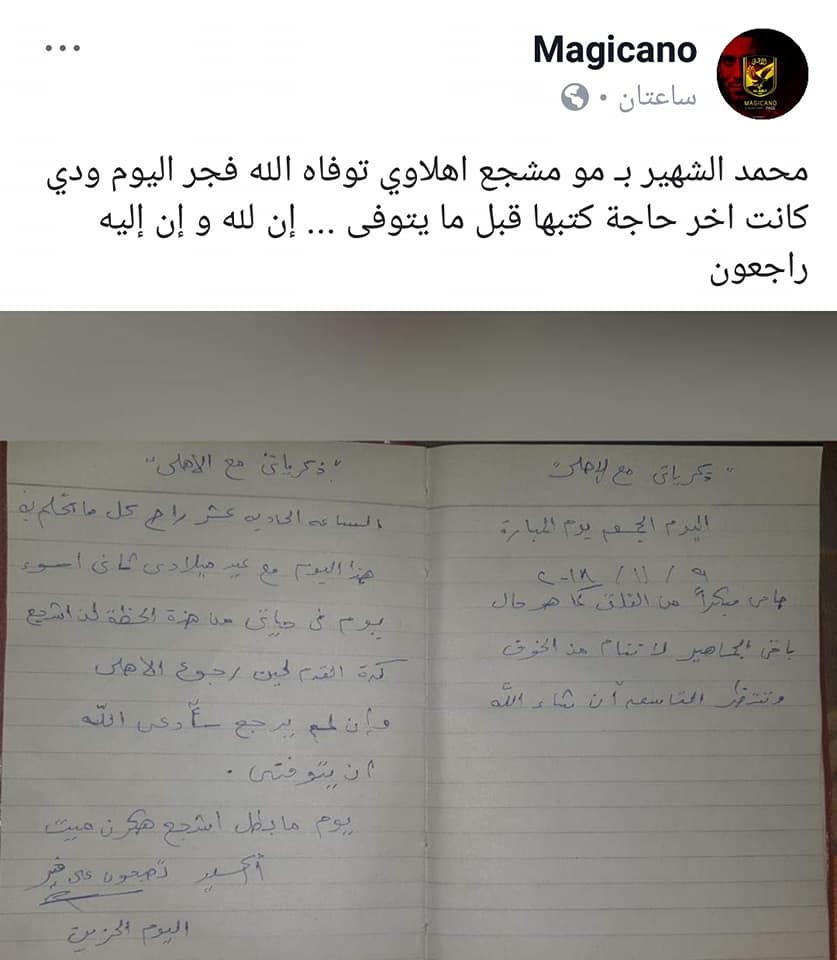 Magicano
ساعتان
محمد الشهير بـ مو مشجع اهلاوي توفاه الله فجر اليوم ودي
كانت اخر حاجة كتبها قبل ما يتوفى ... إن لله و إن إليه
راجعون
"ذكرياتى مع لاهلى"
اليوم الجمعه يوم المبارة
٩ / ١١ / ٢٠١٨
مبكراً من القلق كما هو حال
باقى الجماهير لا تنام من الخوف
وتنتظر التاسعه أن شاء الله
"ذكرياتى مع الأهلى"
الساعه الحاديه عشر راح كل ما تحلم به
هذا اليوم مع عيد ميلادى ثانى اسوء
يوم فى حياتى من هذة الحظة لن اشجع
كرة القدم لحين رجوع الاهلى
وإن لم يرجع سأدعى الله
ان يتوفنى .
يوم ما بطل اشجع هكون ميت
أكيد تصبحون على خير
اليوم الحزين